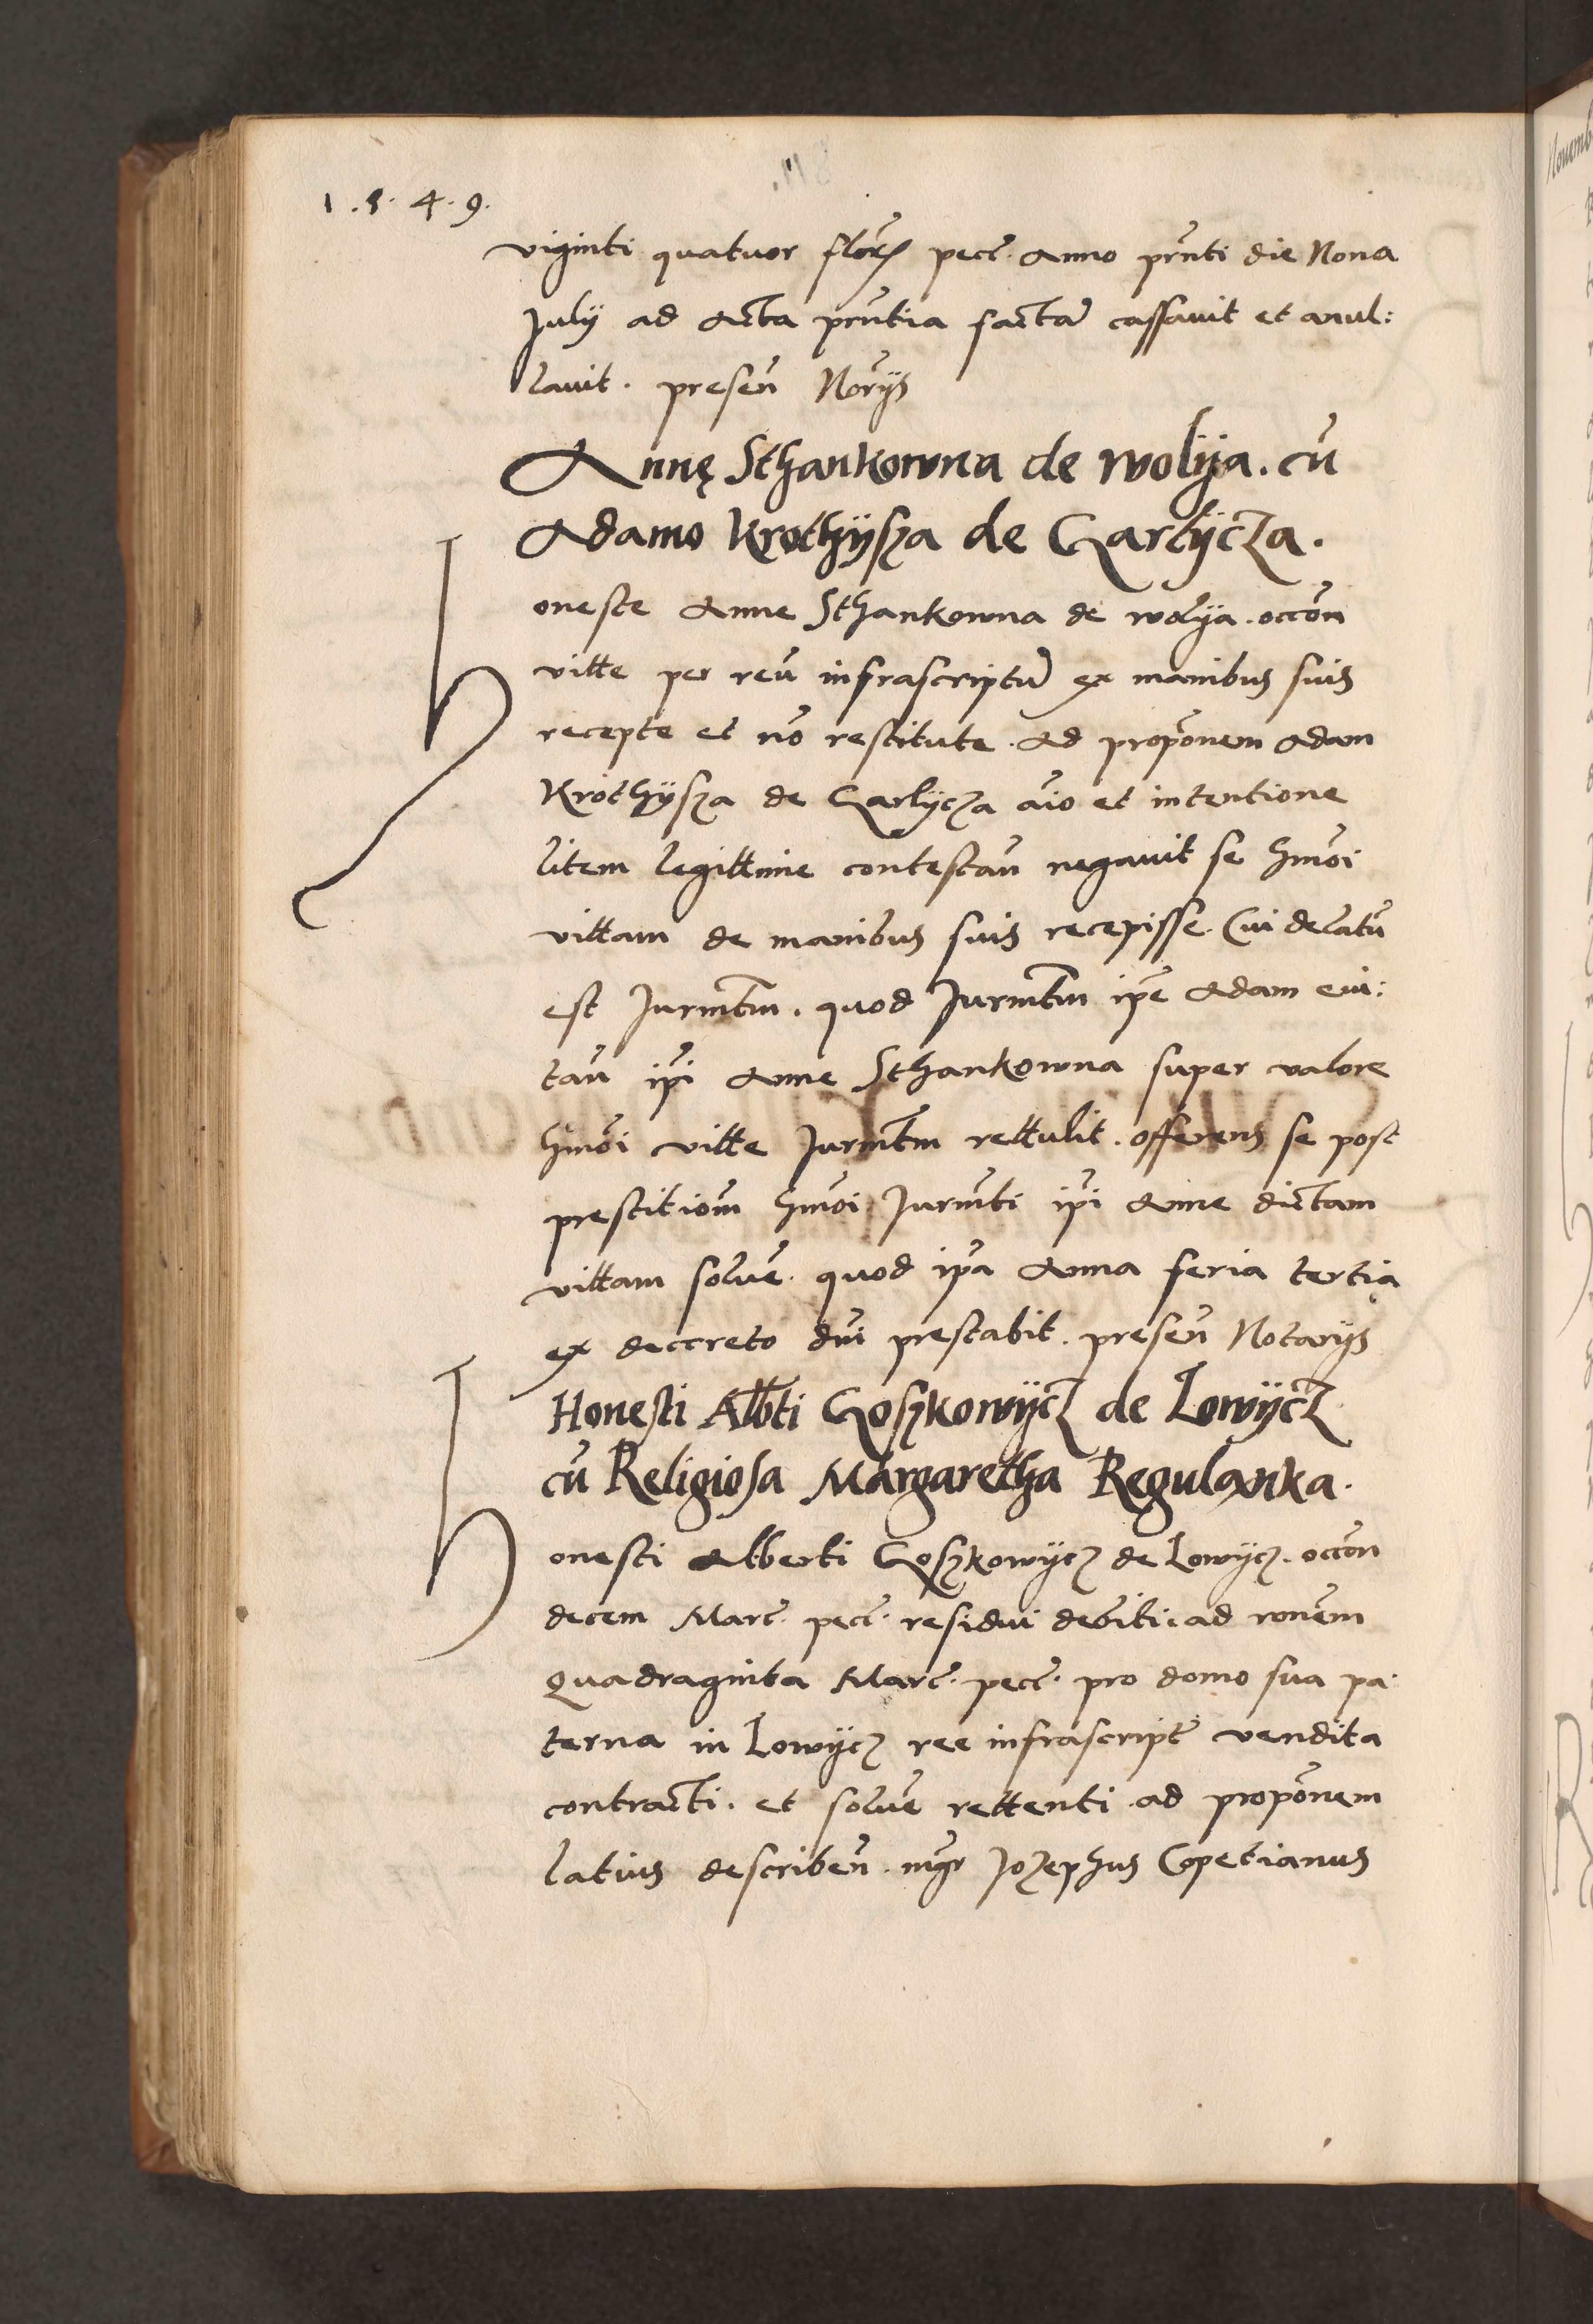 1.5.4.9.
viginti quatuor florꝭ pecc̄. Anno prn̄ti die Nona
July ad Acta prn̄tia factā cassavit et anul:
lavit. presen̄ Norījs
Annę Sthankowna de wolÿa. cū
Adamo Krothÿsza de Garlÿcza.
Honeste Anne Sthankowna de wolÿa. occōn
vitte per reū infrascriptū ex manibus suis
recepte et nō restitute. Ad propōnem Adam
Krothÿsza de Garlÿcza aīo et intentione
litem legittime contestan̄ negavit se hmōi
vittam de manibus suis recepisse. Cui delatū
est Jurmtm̄. quod Jurmtm̄ ip̄e Adam evi:
tan̄ ip̄i Anne Sthankowna super valore
hmōi vitte Jurmtm̄ rettulit. offerens se post
prestitiom̄ hmōi Jurmn̄ti ip̄i Anne dictam
vittam solvē. quod ip̄a Anna feria tertia
ex deccreto dn̄i prestabit. presen̄ Notarijs
Honesti Albti Goszkowÿcz de Lowÿcz
cū Religiosa Margaretha Regulanka.
Honesti Alberti Goszkowÿcz de Lowÿcz. occōn
decem Marc̄. pecc̄. residui debiti. ad ronēm
Quadraginta Marc̄. pecc̄. pro domo sua pa:
terna in Lowÿcz ree infrascript̄ vendita
contracti. et solvē rettenti. ad propōnem
latius describen̄. mḡr Jozephus Copetianus